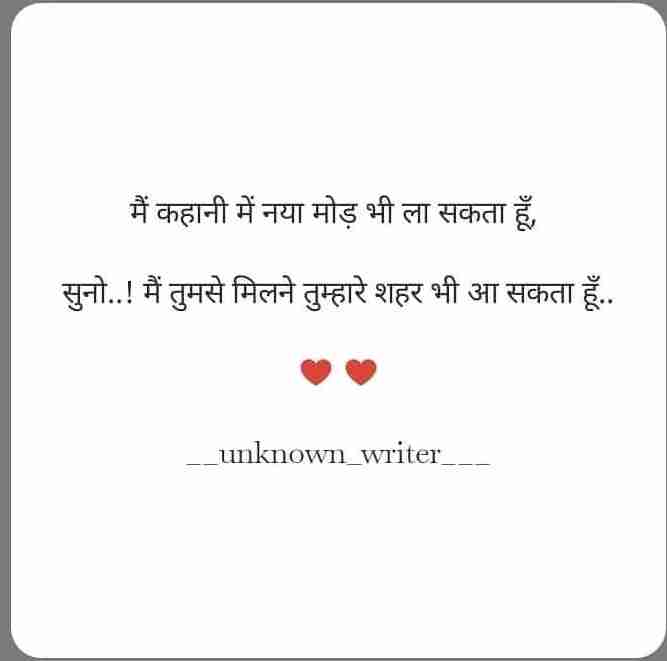 मैं कहानी में नया मोड़ भी ला सकता हूँ,
सुनो..! मैं तुमसे मिलने तुम्हारे शहर भी आ सकता हूँ..
♥ ♥
__unknown_writer___